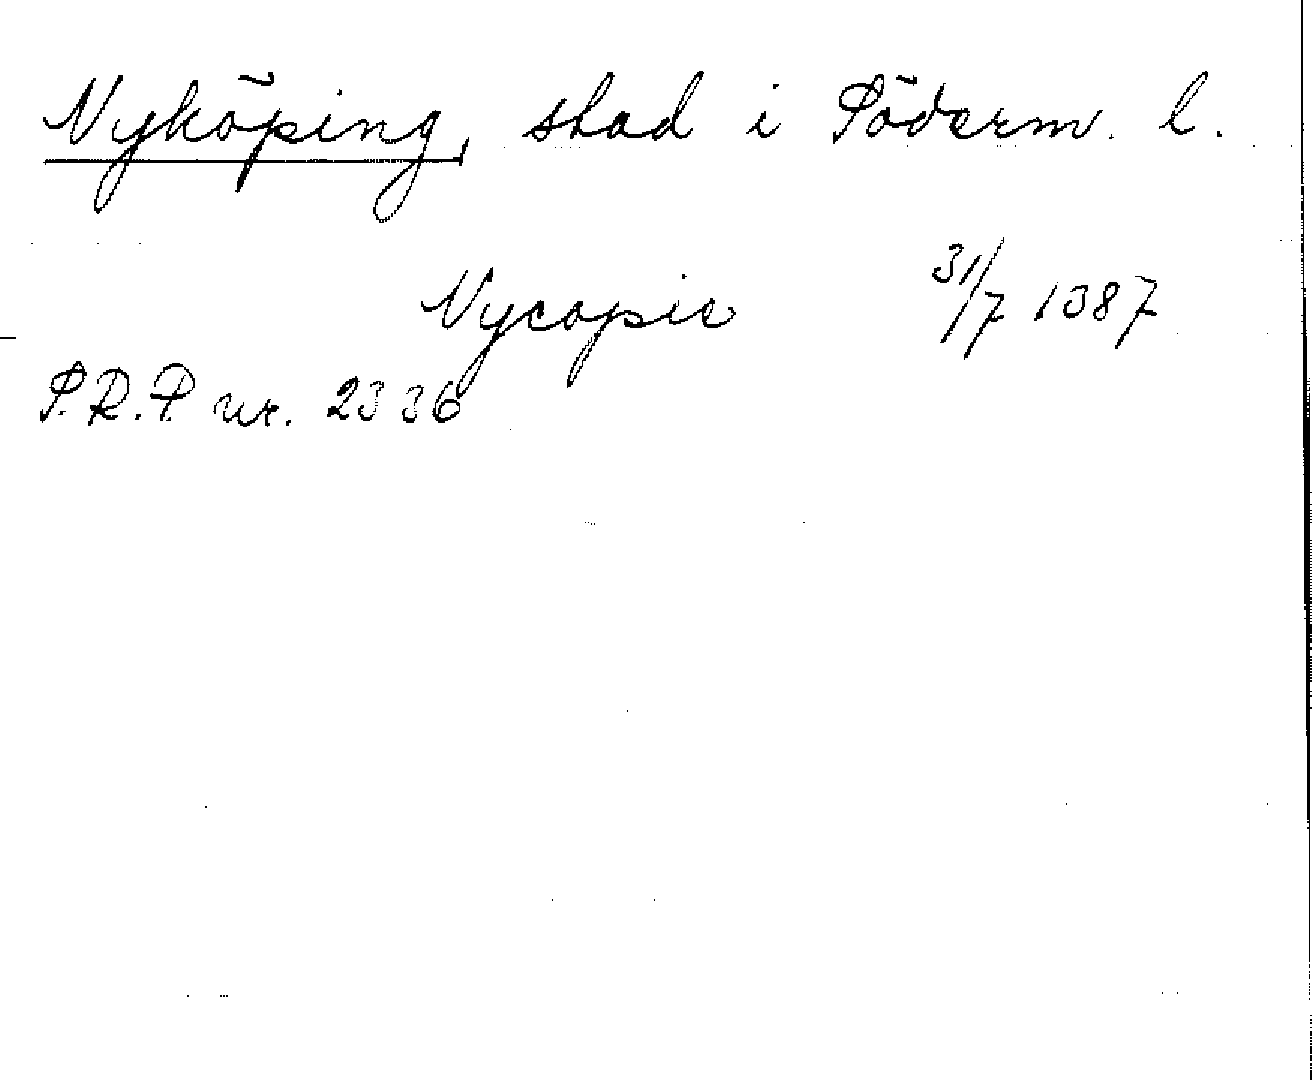 Nyköping, stad i Söderm. l.
Nycopie 31/7 1387
S.R.P. nr. 2336